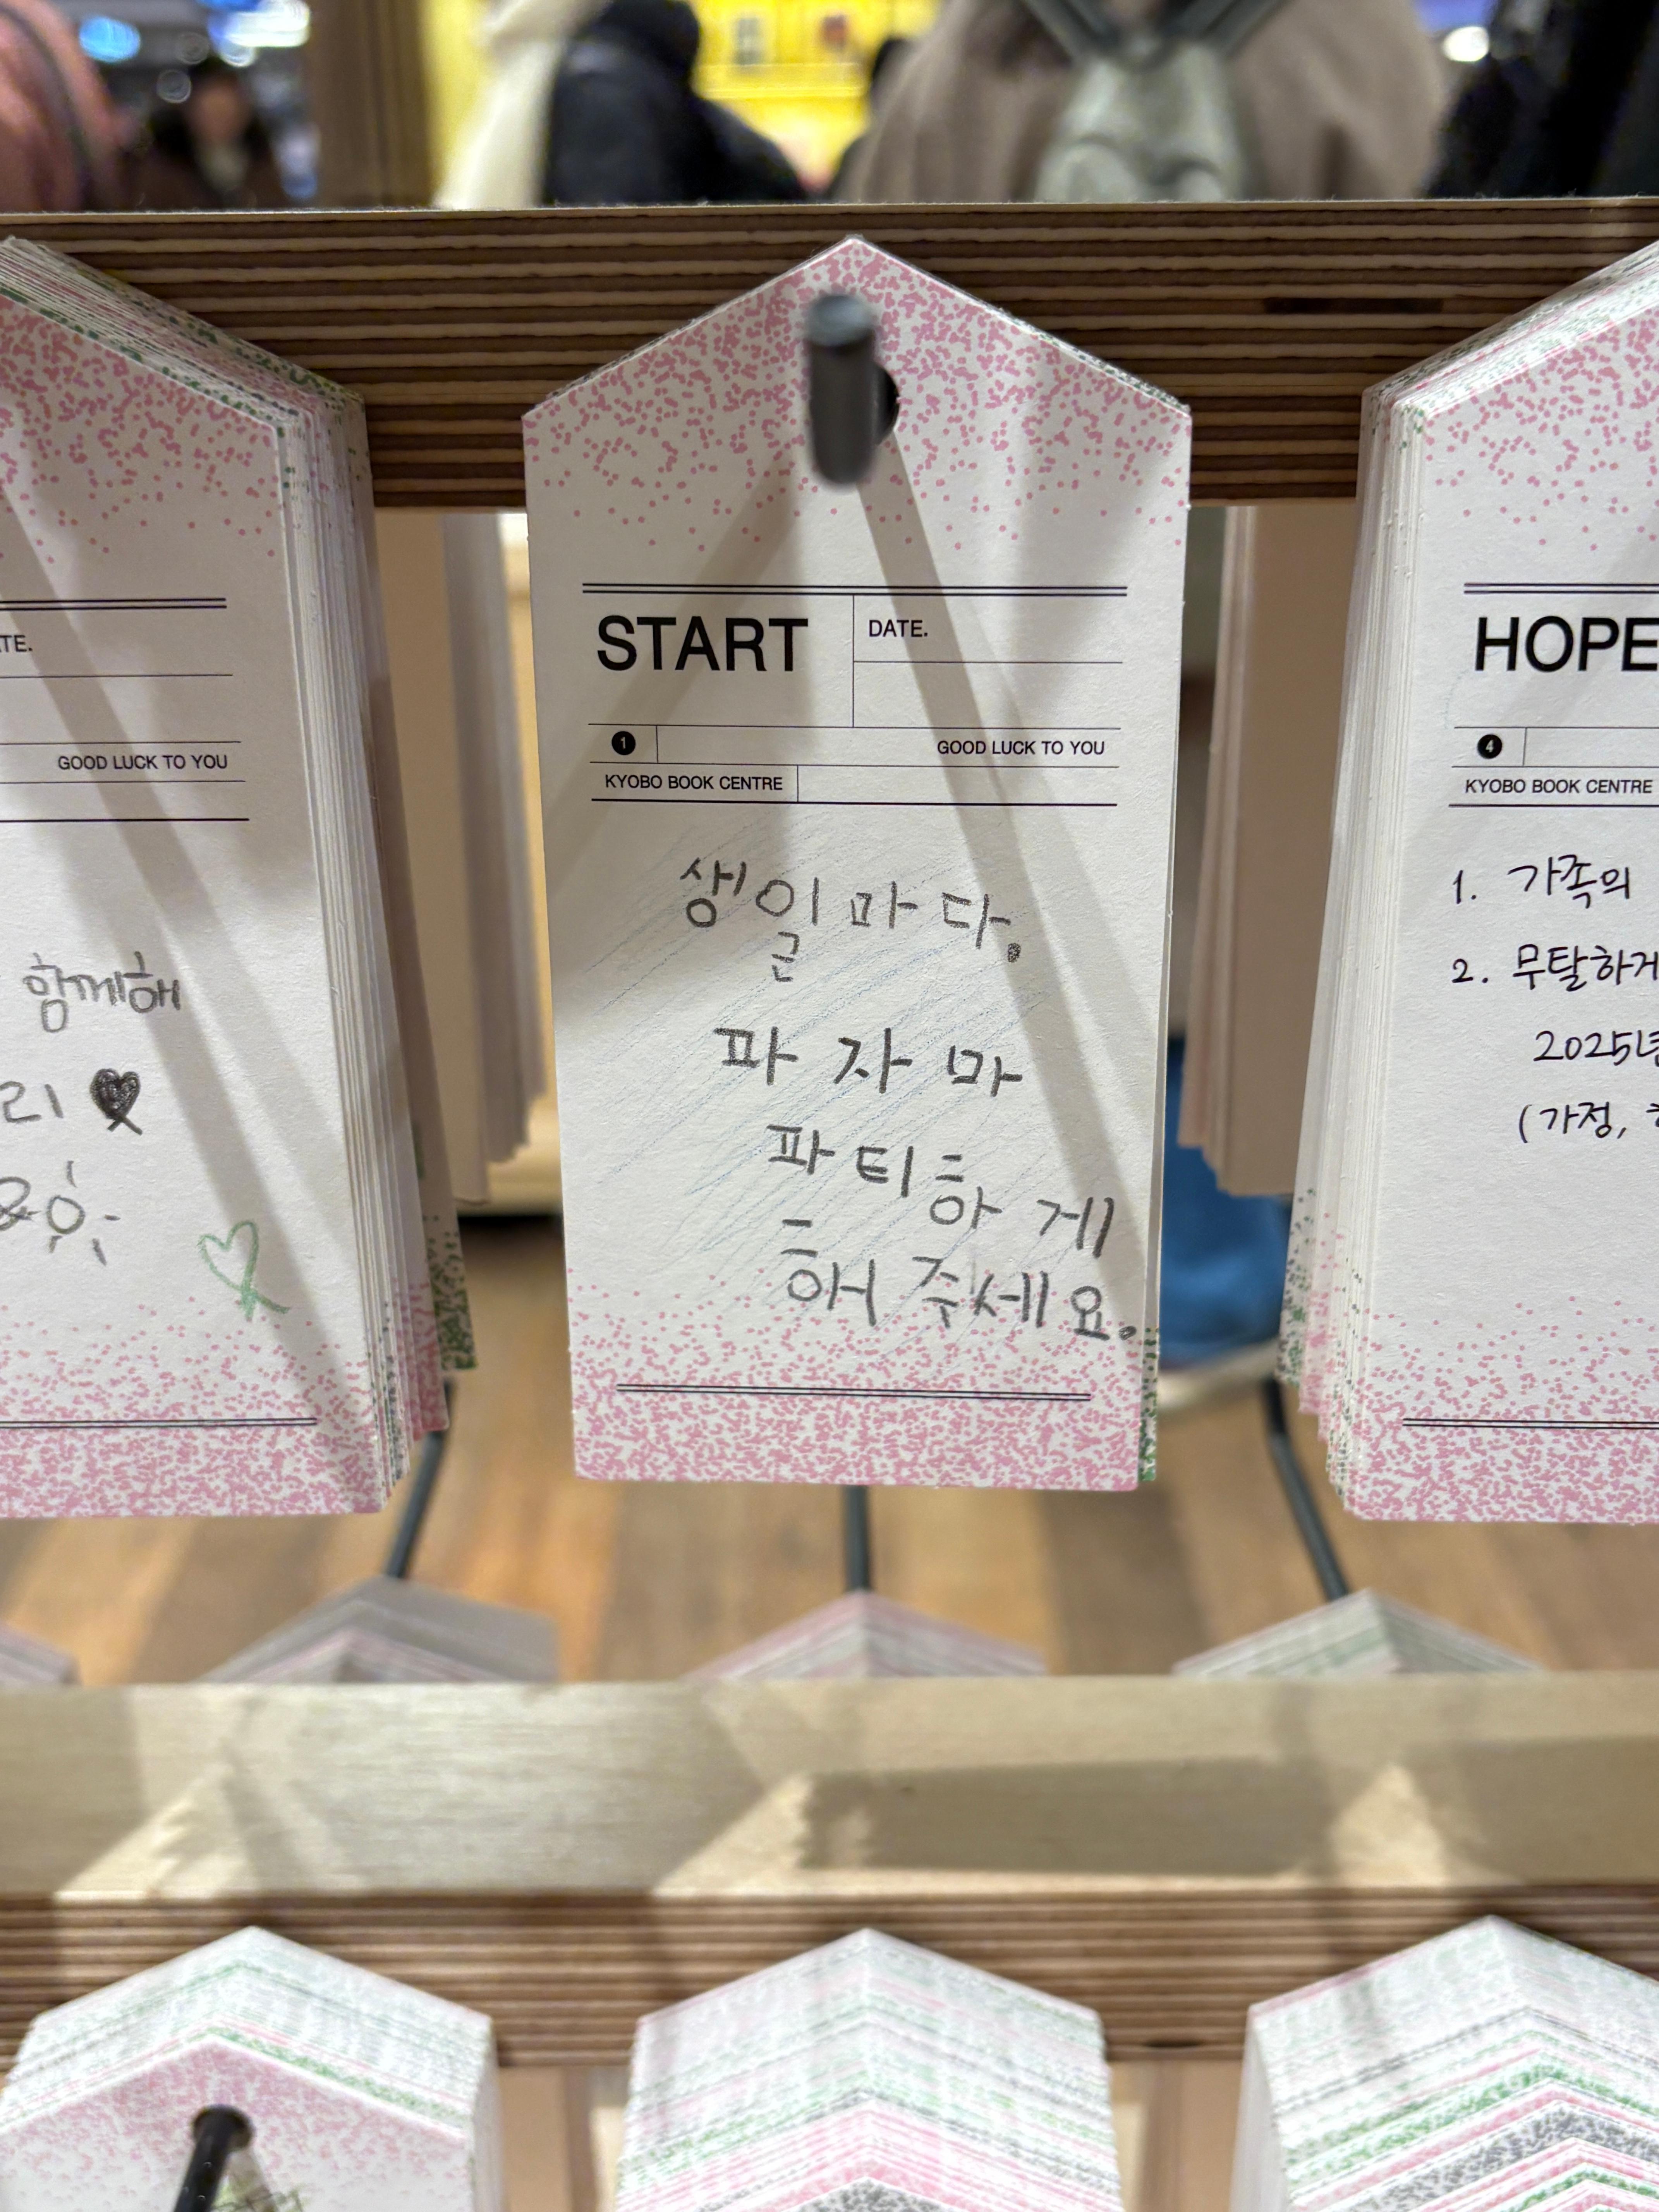 TE.
GOOD LUCK TO YOU
함께해
리
START
DATE.
1
GOOD LUCK TO YOU
KYOBO BOOK CENTRE
생일마다.
파자마
파티하게
해주세요.
HOPE
4
KYOBO BOOK CENTRE
1. 가족의
2. 무탈하게
2025년
(가정,